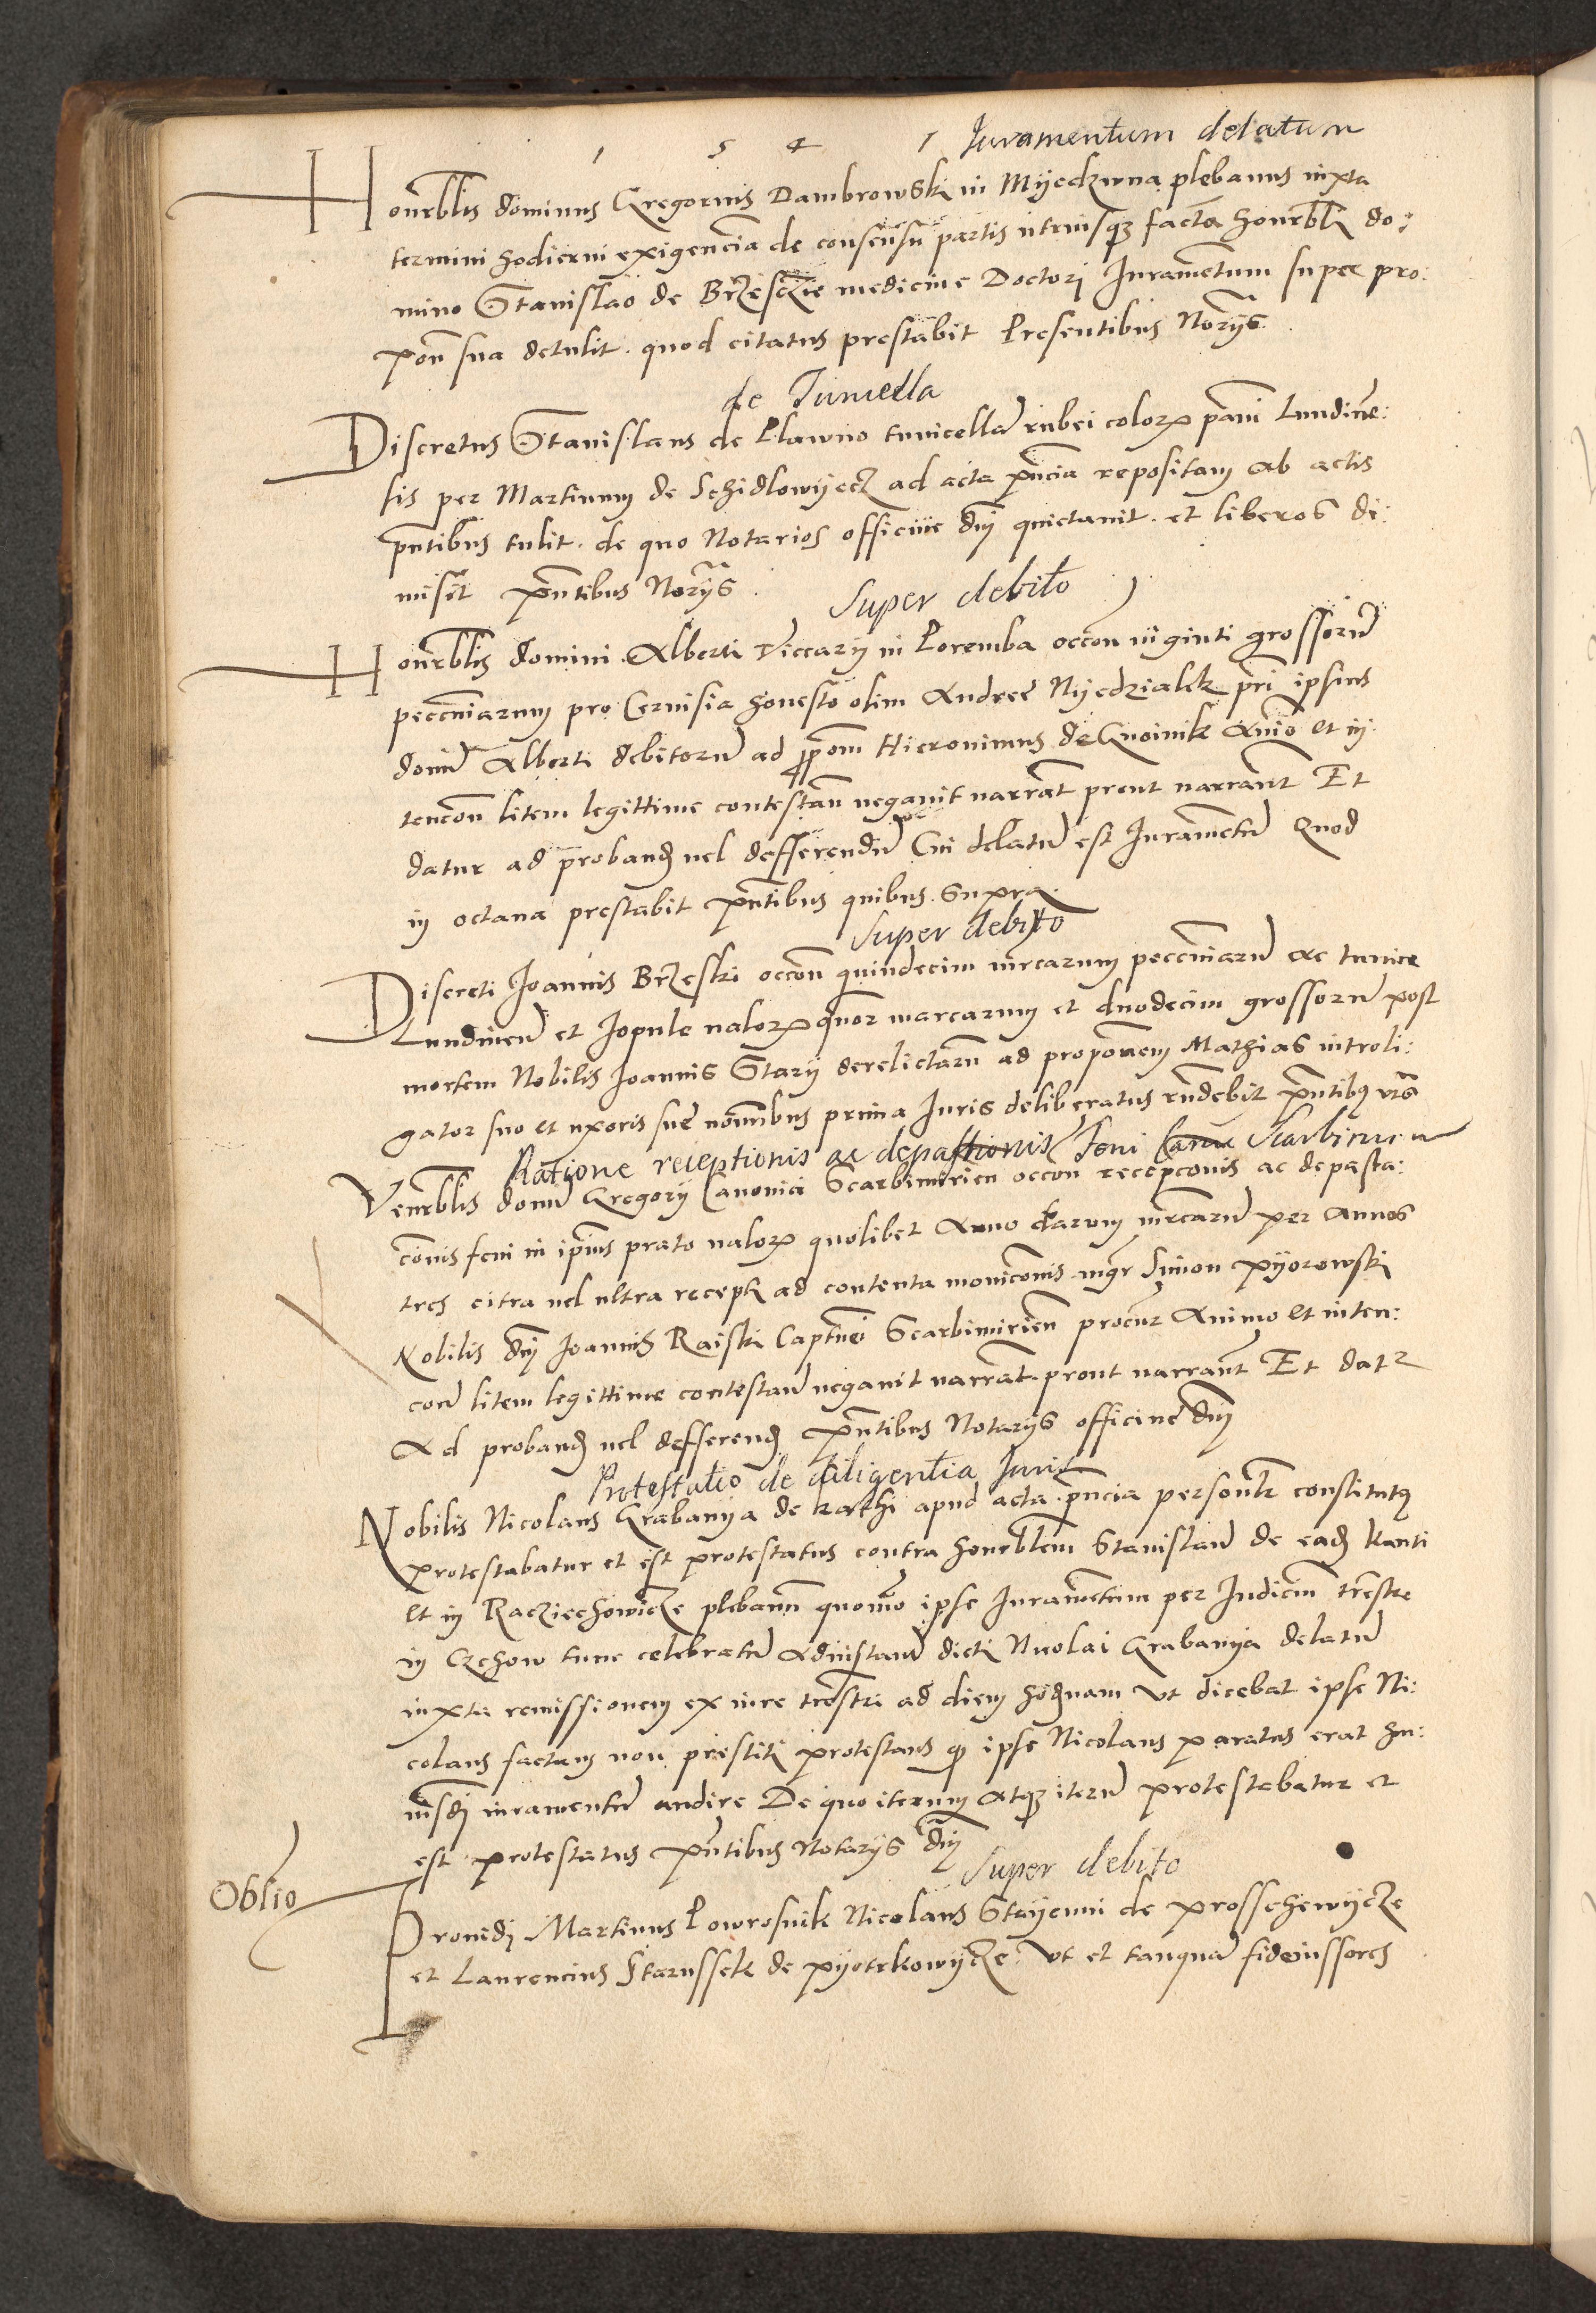 1 5 4 1 Iuramentum delatum
Honrblis dominus Gregorius Dambrowski in Myedzwna plebanus iuxta
termini hodierni exigencia de consensu partis utriusq facta honrbli do:
mino Stanislao de Brzesczie medicine Doctori Iuramentum super pro:
pon sua detulit. quod citatus prestabit Presentibus Norijs
de Tunicella
Discretus Stanislaus de Plawno tunicellā rubei coloris pani Lundinen:
sis per Martinum de Schidlowyecz ad acta pncia repositam ab actis
pntibus tulit. de quo Notarios officiue dnj quictauit. et liberos di:
misit pntibus Norijs.
Super debito
Honrblis domini Alberti Viccarij in Poremba occon uiginti grossorū
pecuniarum pro Ceruisia honesto olim Andree Nyedzialek pri ipsius
domi Alberti debitorū ad ppom Hieronimus de Gnoinik Anio et in
tencon litem legittime contestan negauit narrat prout narrant Et
datur ad proband uel defferendū Cui delatū est Iuramentū Quod
in octaua prestabit pntibus quibus supra.
Super debito
Discreti Ioannis Brzeski occon quindecim mrcarum pecuniarū ac tunice
Lundinen et Iopule valoris quor marcarum et duodecim grossorū post
mortem Nobilis Ioannis Starij derelictarū ad proponem Mathias introli:
gator suo et uxoris sue nominibus prima Iuris deliberatus rndebit pntibus uts
Ratione receptionis ac depastionis Feni Scarbimirien
Venrblis domi Gregorij Canonici Scarbimirien occon recepconis ac depasta:
conis feni in ipsius prato valoris quolibet Anno duarum mrcarū per annos
tres citra uel ultra recepti ad contenta moniconis mgr Simon Pyorowski
Nobilis dnj Ioannis Raiski Captnei Scarbimirien procur Animo et inten:
con litem legittime contestan negauit narrat. prout narrant Et datr
Ad proband uel defferend pntibus Notarijs officiue dnj
Protestatio de diligentia Iuris
Nobilis Nicolaus Grabanya de kathi apud acta pncia personlr constitutus
protestabatur et est protestatus contra honrblem Stanislaū de ead Kanti
et in Racziechowicze plebanū quomo ipse Iuramentum per Iudiciū trestre
in Czchow tunc celebratū Ad instanū dicti Nicolai Grabanya delatū
iuxta remissionem ex iure trestri ad diem hodnam Vt dicebat ipse Ni:
colaus factam non prestiti protestans q ipse Nicolaus paratus erat hu:
iusdj iuramentū audire De quo iterum atq iterū protestabatur et
est protestatus pntibus Notarijs dnj
Super debito
Oblio
Prouidj Martinus Powrosnik Nicolaus Stayenni de Prosschewycze
et Laurencius Starussek de pyotrkowycze. Vt et tanquā fideiussores